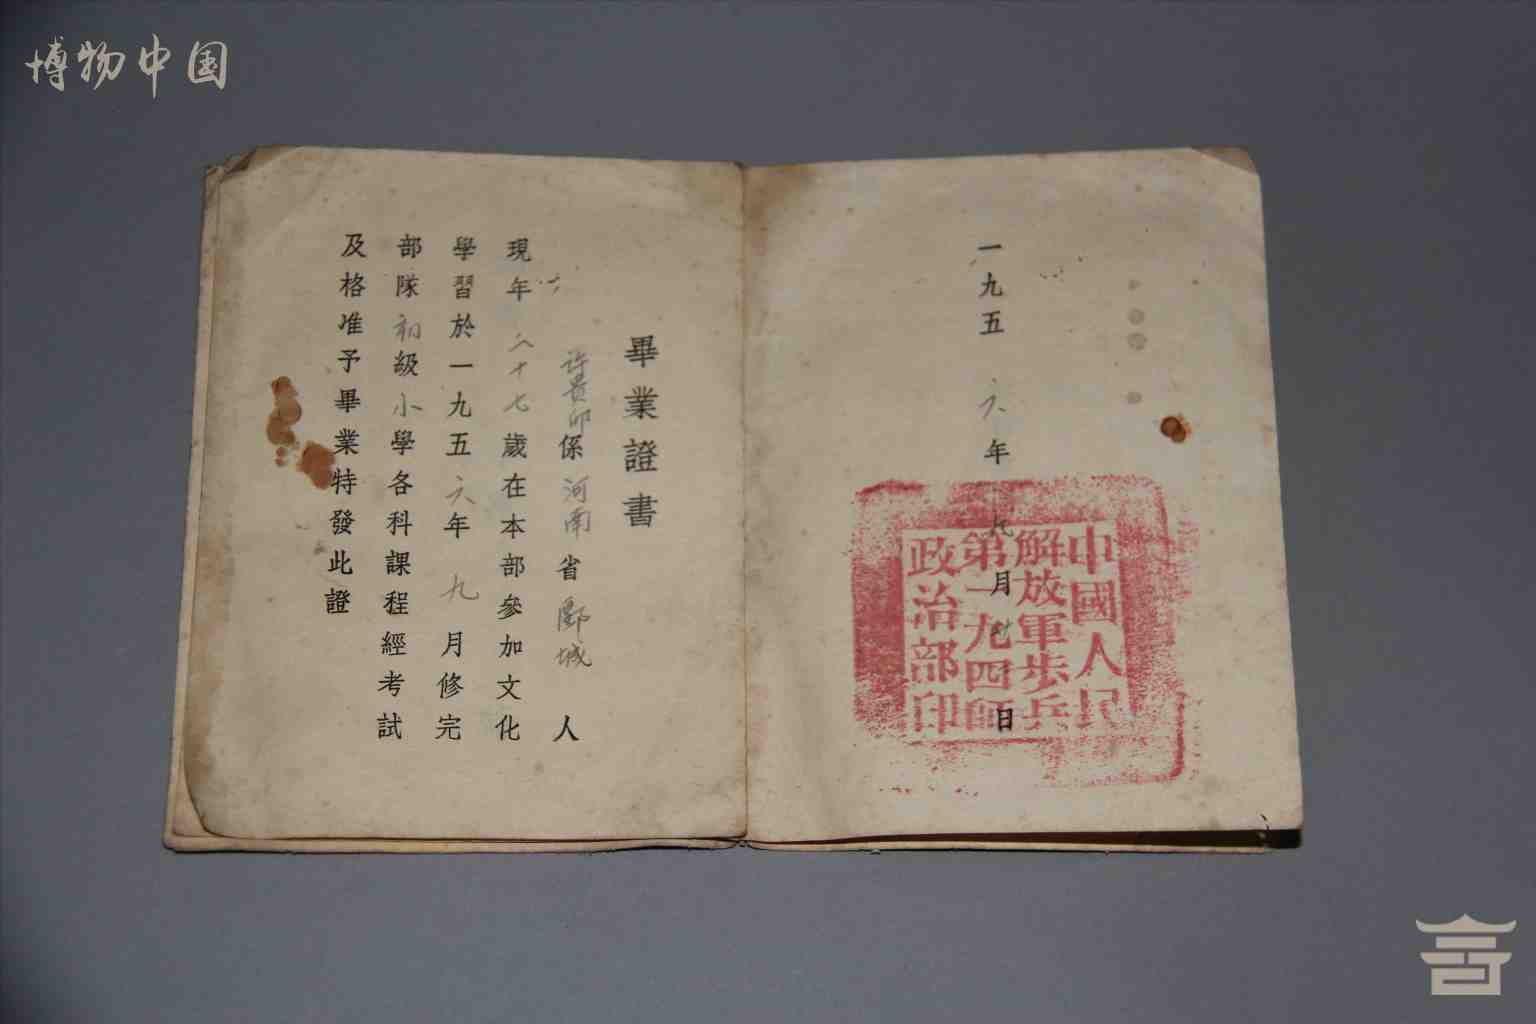 博物中国
畢業證書
許貴卯係河南省郾城人
現年二十七歲在本部參加文化
學習於一九五六年九月修完
部隊初級小學各科課程經考試
及格准予畢業特發此證
一九五六年九月日
中國人民
解放軍步兵
第一九四師
政治部印